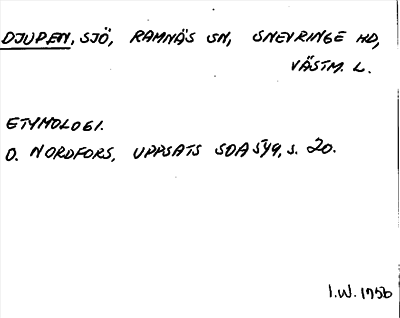 DJUPEN, SJÖ, RAMNÄS SN, SNEVRINGE HD,
VÄSTM. L.
ETYMOLOGI.
O. NORDFORS, UPPSATS SOA 549, S. 20.
I.W. 1956